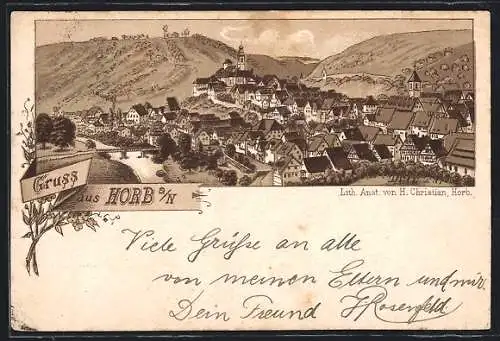 Gruss
aus HORB a/N
Lith. Anst. von H. Christian, Horb.
Viele Grüße an alle
von meinen Eltern und mir.
Dein Freund HRosenfeld